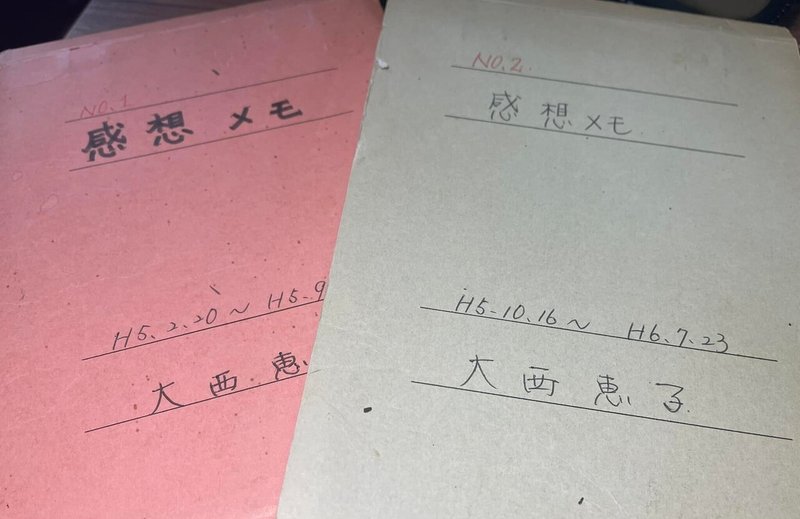 NO.1
感想メモ
H5.2.20～H5.9
大西恵
NO.2.
感想メモ
H5-10.16～ H6.7.23
大西恵子